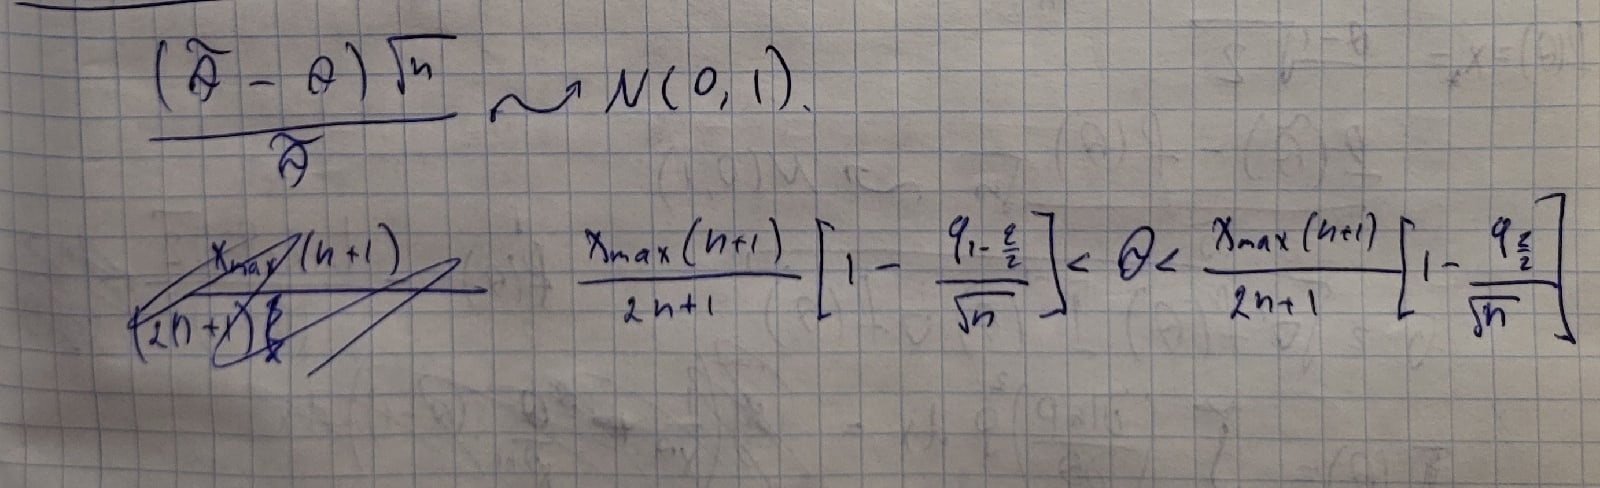 (θ̃ - θ)√n / θ̃ ⇝ N(0, 1).
x_max (n+1) / (2n+1) x_max (n+1) / 2n+1 [1 - q_{1-ε/2} / √n] < θ < x_max (n+1) / 2n+1 [1 - q_{ε/2} / √n]